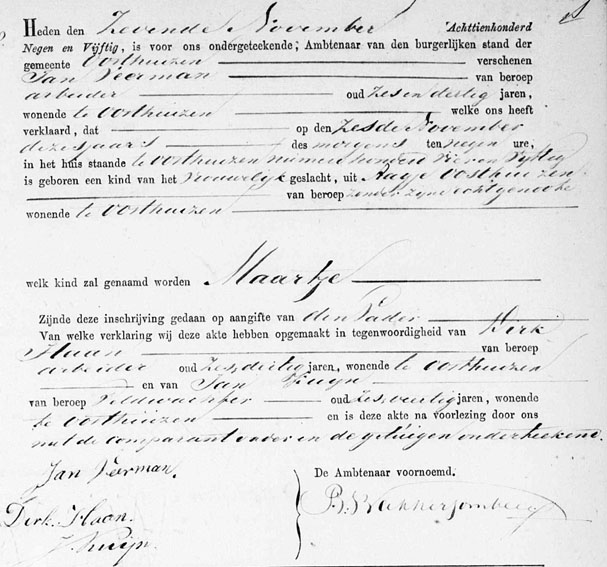 Heden den Zevende November Achttienhonderd
Negen en Vijftig, is voor ons ondergeteekende; Ambtenaar van den burgerlijken stand der
gemeente Oosthuizen verschenen
Jan Veerman van beroep
arbeider oud zes en dertig jaren,
wonende te Oosthuizen welke ons heeft
verklaard, dat op den Zesde November
dezes jaars des morgens ten negen ure,
in het huis staande te Oosthuizen nummer honderd vier en vyftig
is geboren een kind van het Vrouwelyk geslacht, uit Aagje Oosthuizen
van beroep zonder zyne echtgenoote
wonende te Oosthuizen
welk kind zal genaamd worden Maartje
Zijnde deze inschrijving gedaan op aangifte van den Vader
Van welke verklaring wij deze akte hebben opgemaakt in tegenwoordigheid van Dirk
Haan van beroep
arbeider oud zes, dertig jaren, wonende te Oosthuizen
en van Jan Kuyn
van beroep Veldwachter oud zes, veertig jaren, wonende
te Oosthuizen en is deze akte na voorlezing door ons
met de comparant en de getuigen onderteekend.
Jan Veerman.
De Ambtenaar voornoemd.
Dirk Haan.
J. Kuijn